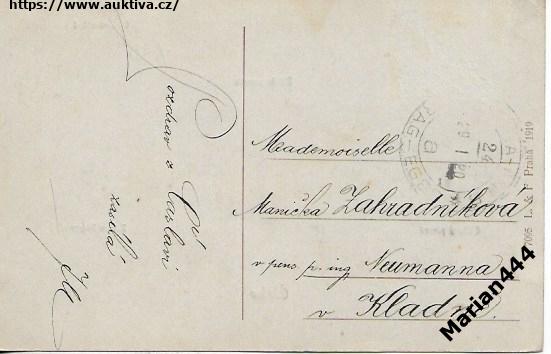 https://www.auktiva.cz/
Pozdrav z Čáslavi
zasílá
Mademoiselle
Manička Zahradníkova
v pens. p. ing. Neumanna
v Kladně
24
29 I 20
a
7095 L. & P. Praha 1919
Marian444